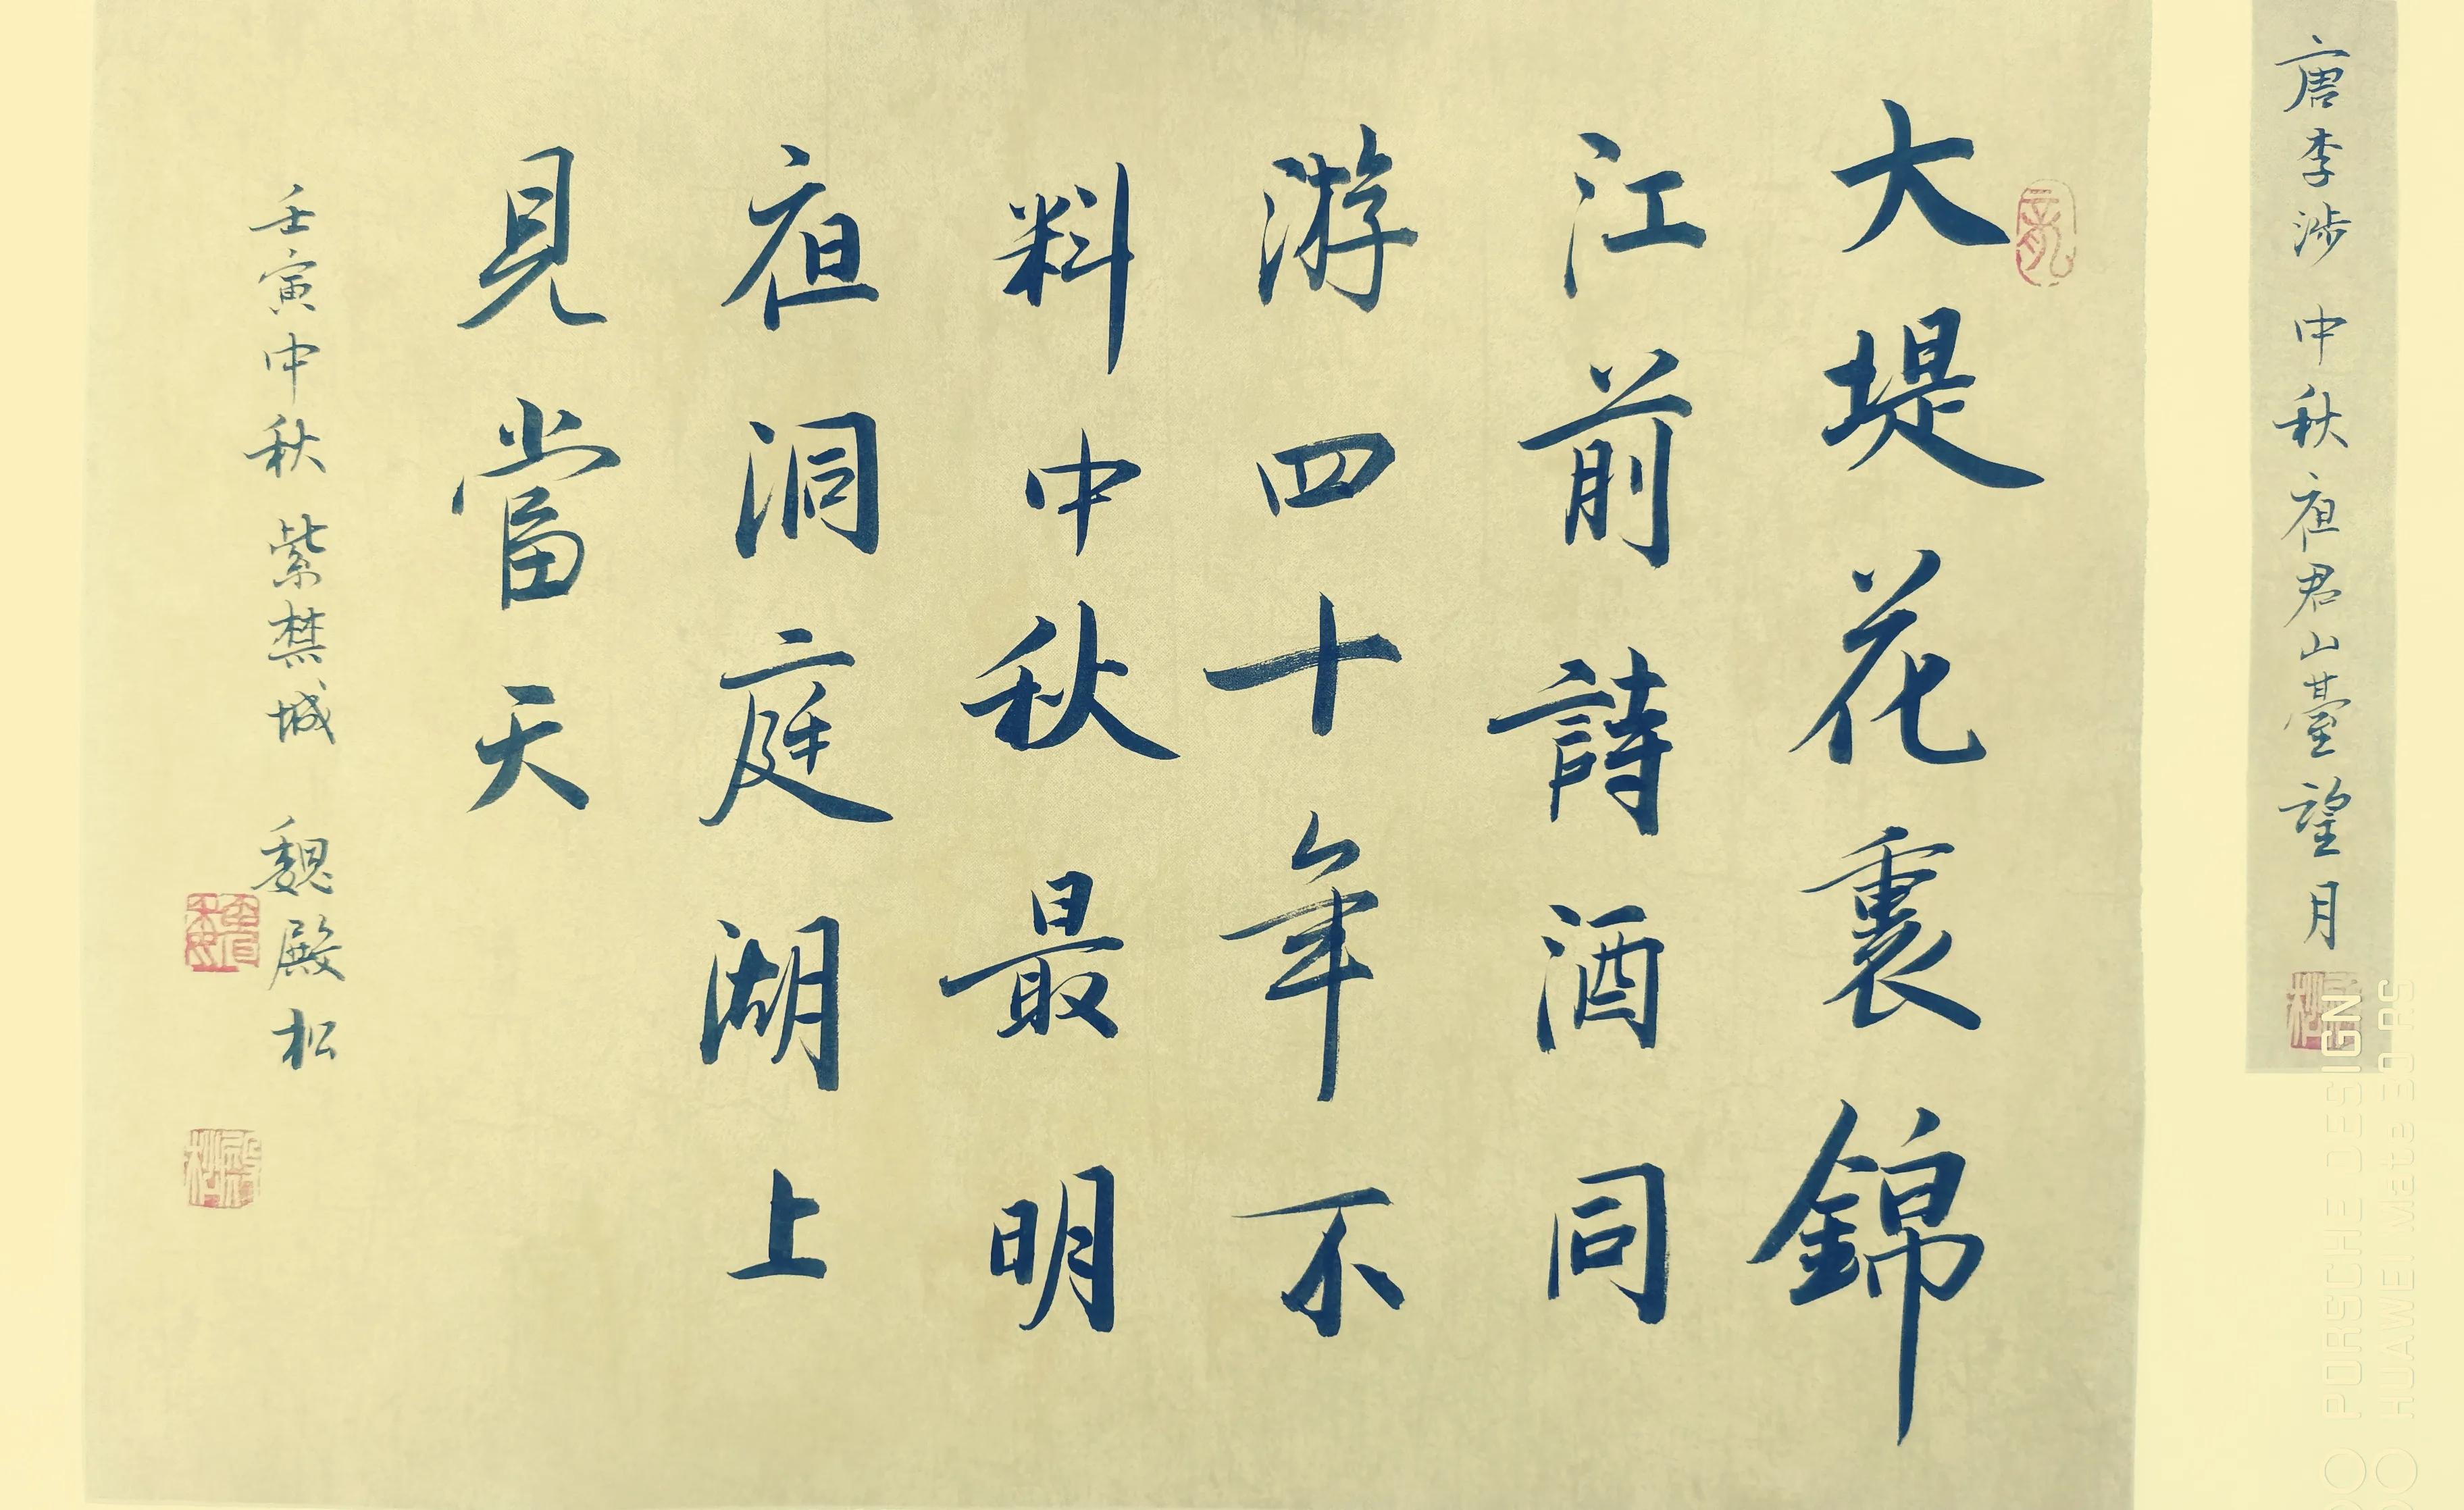 唐李涉 中秋夜君山臺望月
大堤花裏錦
江前詩酒同
游四十年不
料中秋最明
夜洞庭湖上
見當天
壬寅中秋 紫禁城 魏殿松
魏
殿松
PORSCHE DESIGN
HUAWEI Mate 30 RS